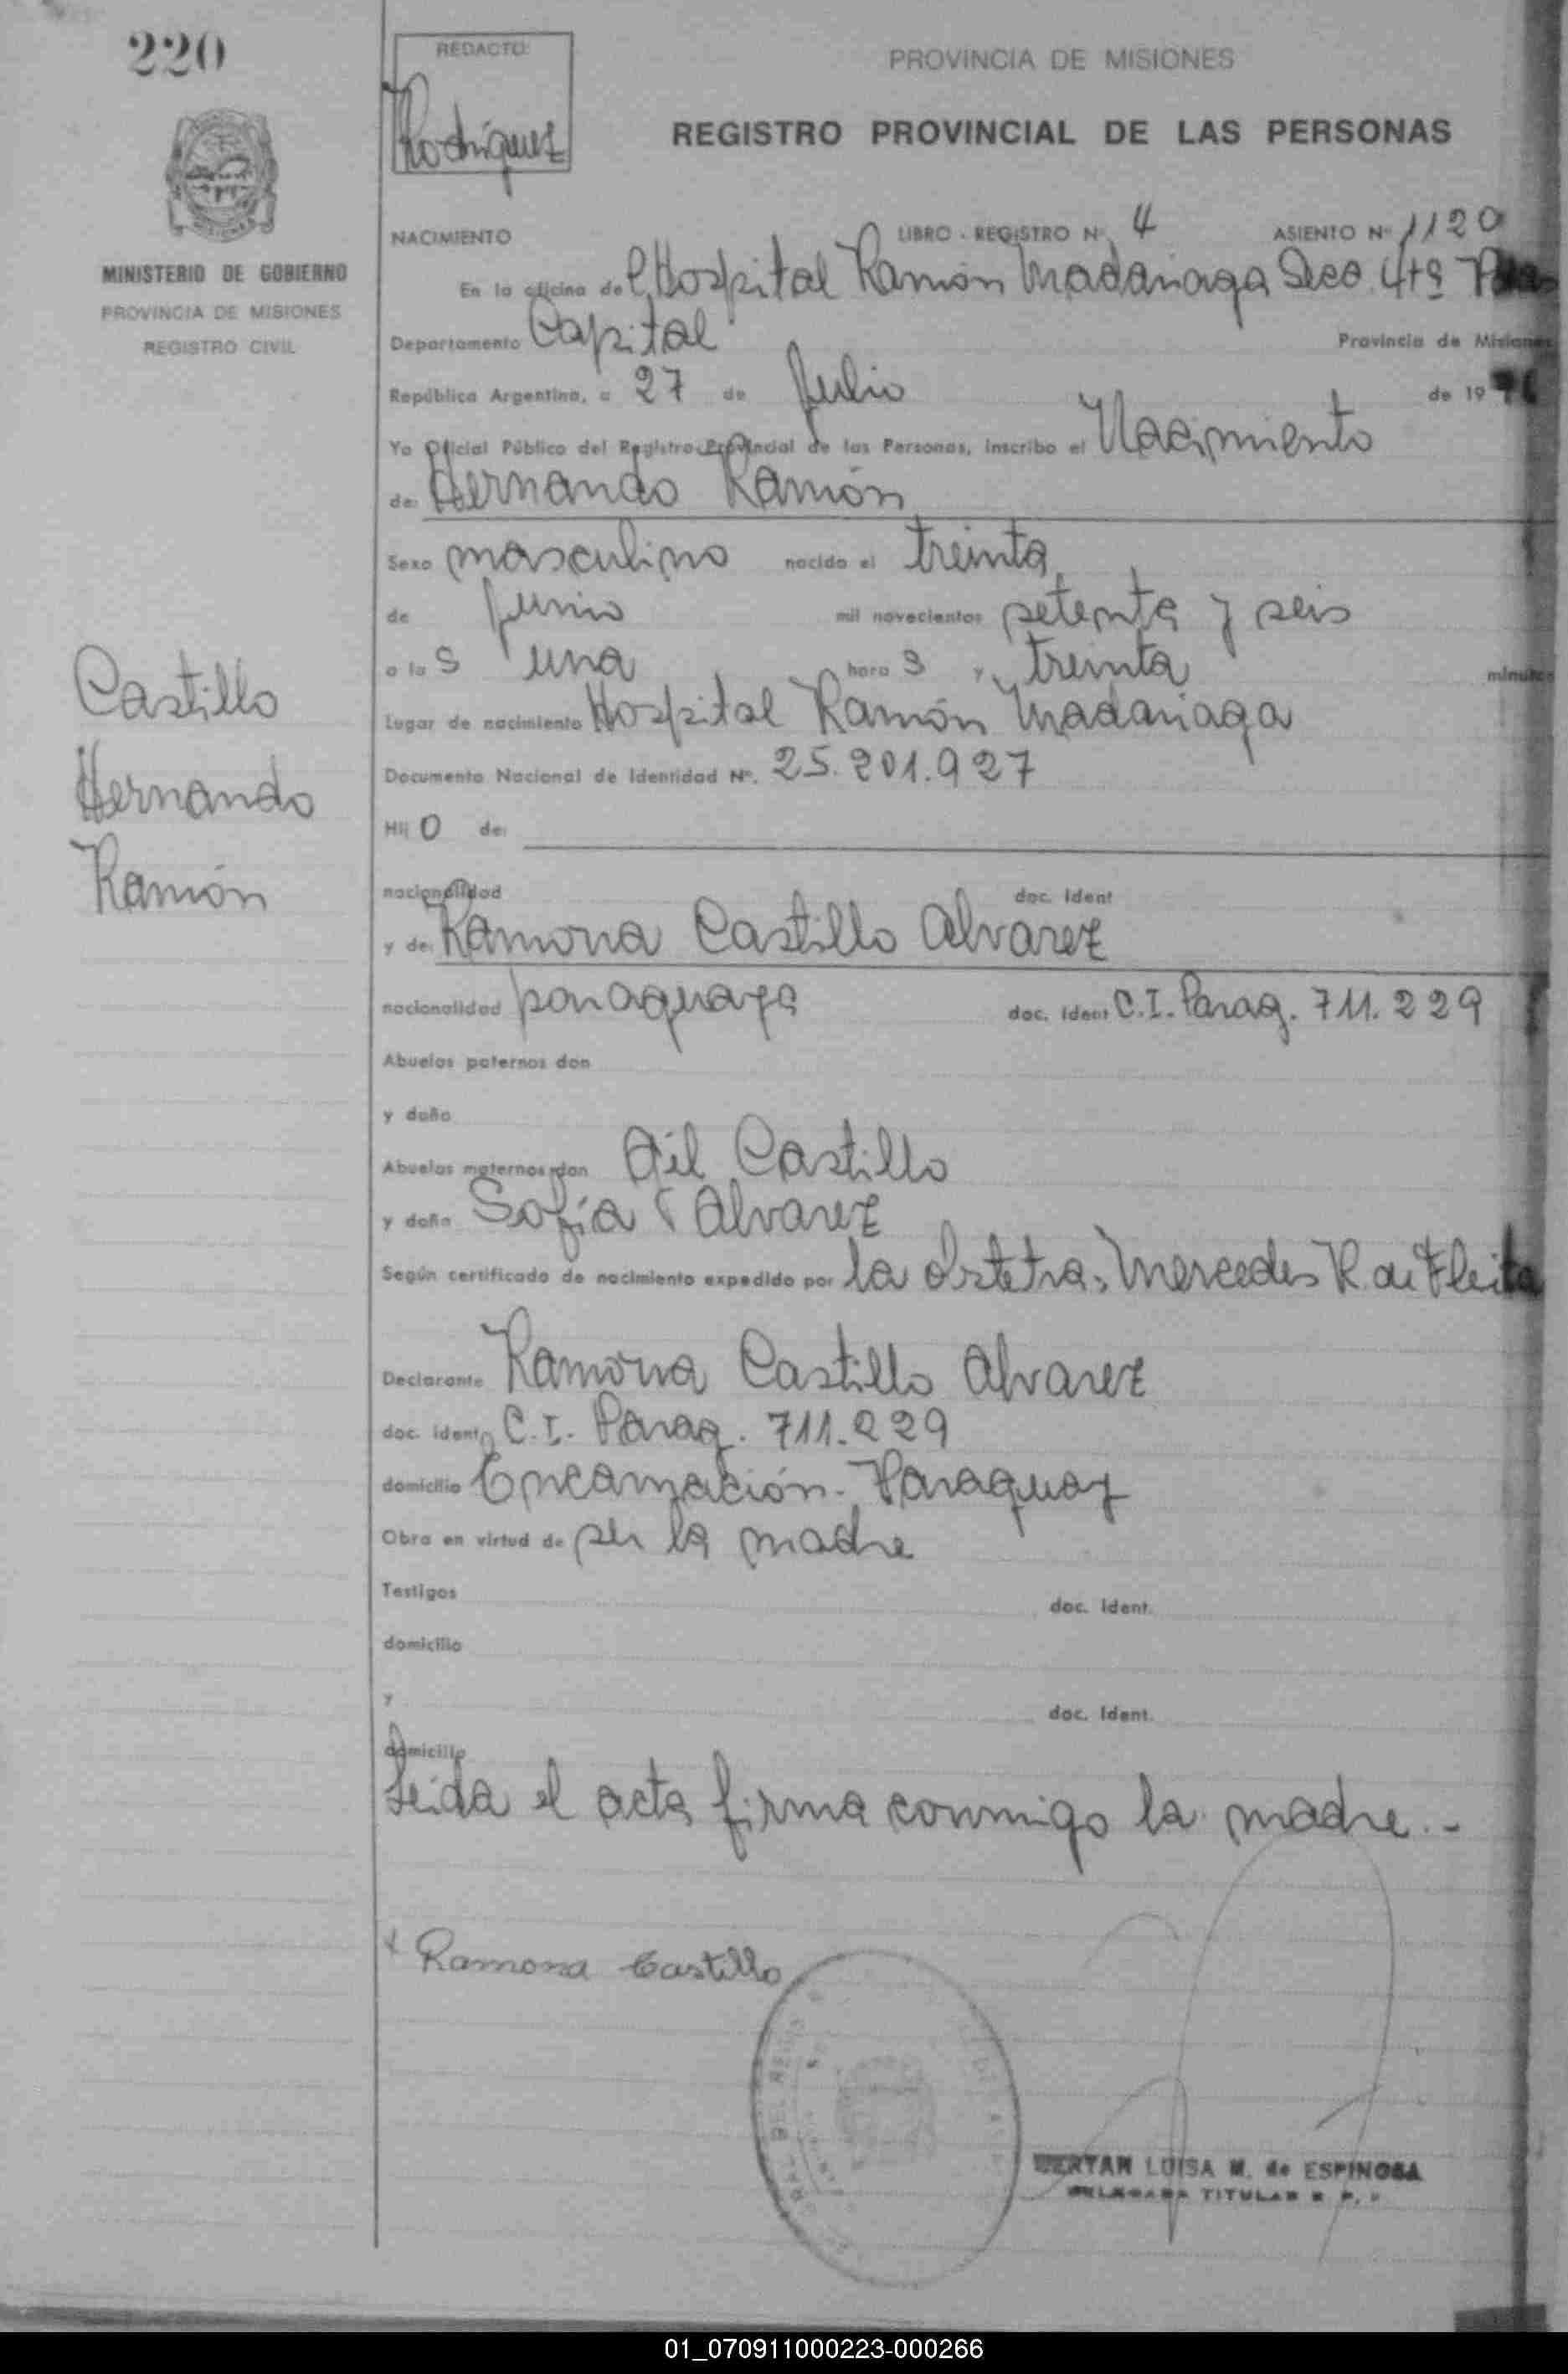 220
MINISTERIO DE GOBIERNO
PROVINCIA DE MISIONES
REGISTRO CIVIL
Castillo
Hernando
Ramón
REDACTO:
Rodríguez
PROVINCIA DE MISIONES
REGISTRO PROVINCIAL DE LAS PERSONAS
NACIMIENTO LIBRO - REGISTRO Nº 4 ASIENTO Nº 1120
En la oficina del Hospital Ramón Madariaga Secc. 4ta
Departamento Capital Provincia de Misiones
República Argentina, a 27 de Julio de 1976
Yo Oficial Público del Registro Provincial de las Personas, inscribo el Nacimiento
de: Hernando Ramón
Sexo masculino nacido el treinta
de Junio mil novecientos setenta y seis
a las una horas y treinta minutos
Lugar de nacimiento Hospital Ramón Madariaga
Documento Nacional de Identidad Nº. 25.201.927
Hijo de:
nacionalidad doc. Ident
y de: Ramona Castillo Alvarez
nacionalidad paraguaya doc. Ident C.I. Parag. 711.229
Abuelos paternos don
y doña
Abuelos maternos don Gil Castillo
y doña Sofía Alvarez
Según certificado de nacimiento expedido por la obstetra: Mercedes R. de Fleita
Declarante Ramona Castillo Alvarez
doc. Ident C.I. Parag. 711.229
domicilio Encarnación - Paraguay
Obra en virtud de ser la madre
Testigos doc. Ident.
domicilio
y doc. Ident.
domicilio
Leída el acta firma conmigo la madre.-
x Ramona Castillo
LUISA M. de ESPINOSA
TITULAR
01_070911000223-000266